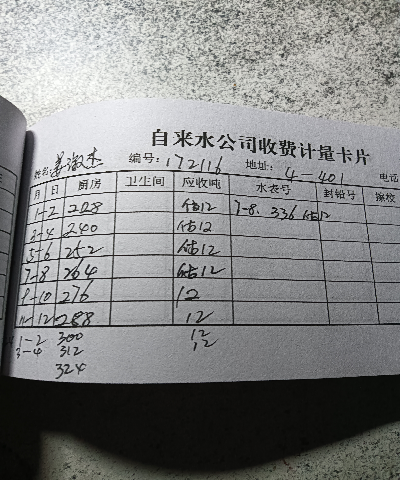 自来水公司收费计量卡片
姓名: 姜淑杰 编号: 172116 地址: 4-401 电话
月 日 厨房 卫生间 应收吨 水表号 封铅号 稽校
1-2 228 估12 7-8. 336 估12
3-4 240 估12
5-6 252 估12
7-8 264 估12
9-10 276 12
11-12 288 12
1-2 300 12
3-4 312 12
324